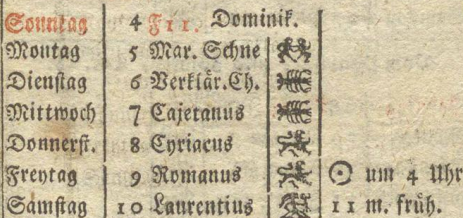 Sonntag 4 F 11. Dominik.
Montag 5 Mar. Schne
Dienstag 6 Verklär.Ch.
Mittwoch 7 Cajetanus
Donnerst. 8 Cyriacus
Freytag 9 Romanus ☉ um 4 Uhr
Samstag 10 Laurentius 11 m. früh.